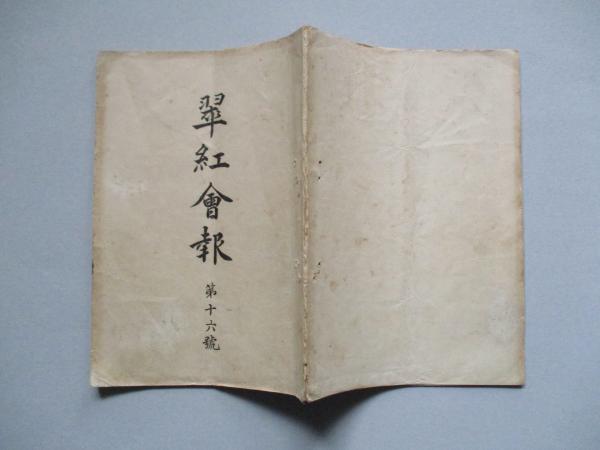 翠紅會報
第十六號